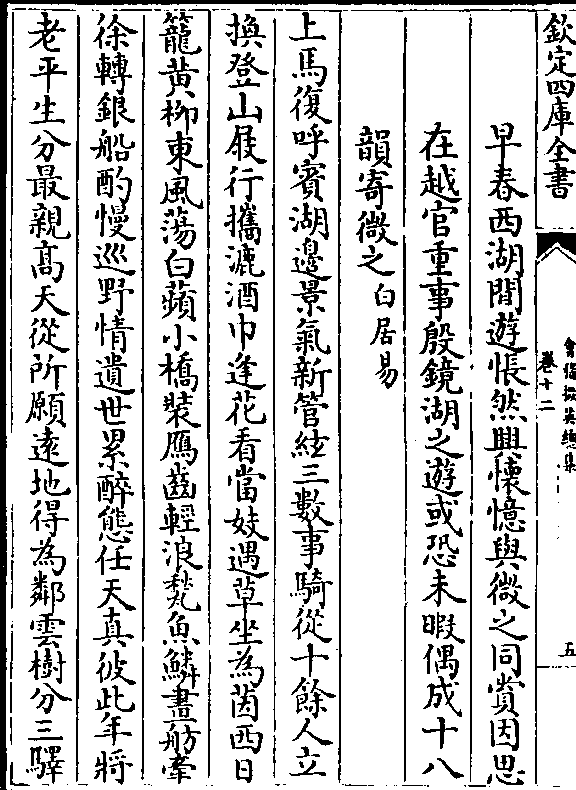 欽定四庫全書
會稽掇英總集
卷十二
五
早春西湖閒遊悵然興懷憶與微之同賞因思
在越官重事殷鏡湖之遊或恐未暇偶成十八
韻寄微之 白居易
上馬復呼賓湖邊景氣新管絃三數事騎從十餘人立
換登山屐行攜漉酒巾逢花看當妓遇草坐為茵西日
籠黃柳東風蕩白蘋小橋裝鴈齒輕浪甃魚鱗畫舫牽
徐轉銀船酌慢巡野情遺世累醉態任天真彼此年將
老平生分最親高天從所願遠地得為鄰雲樹分三驛